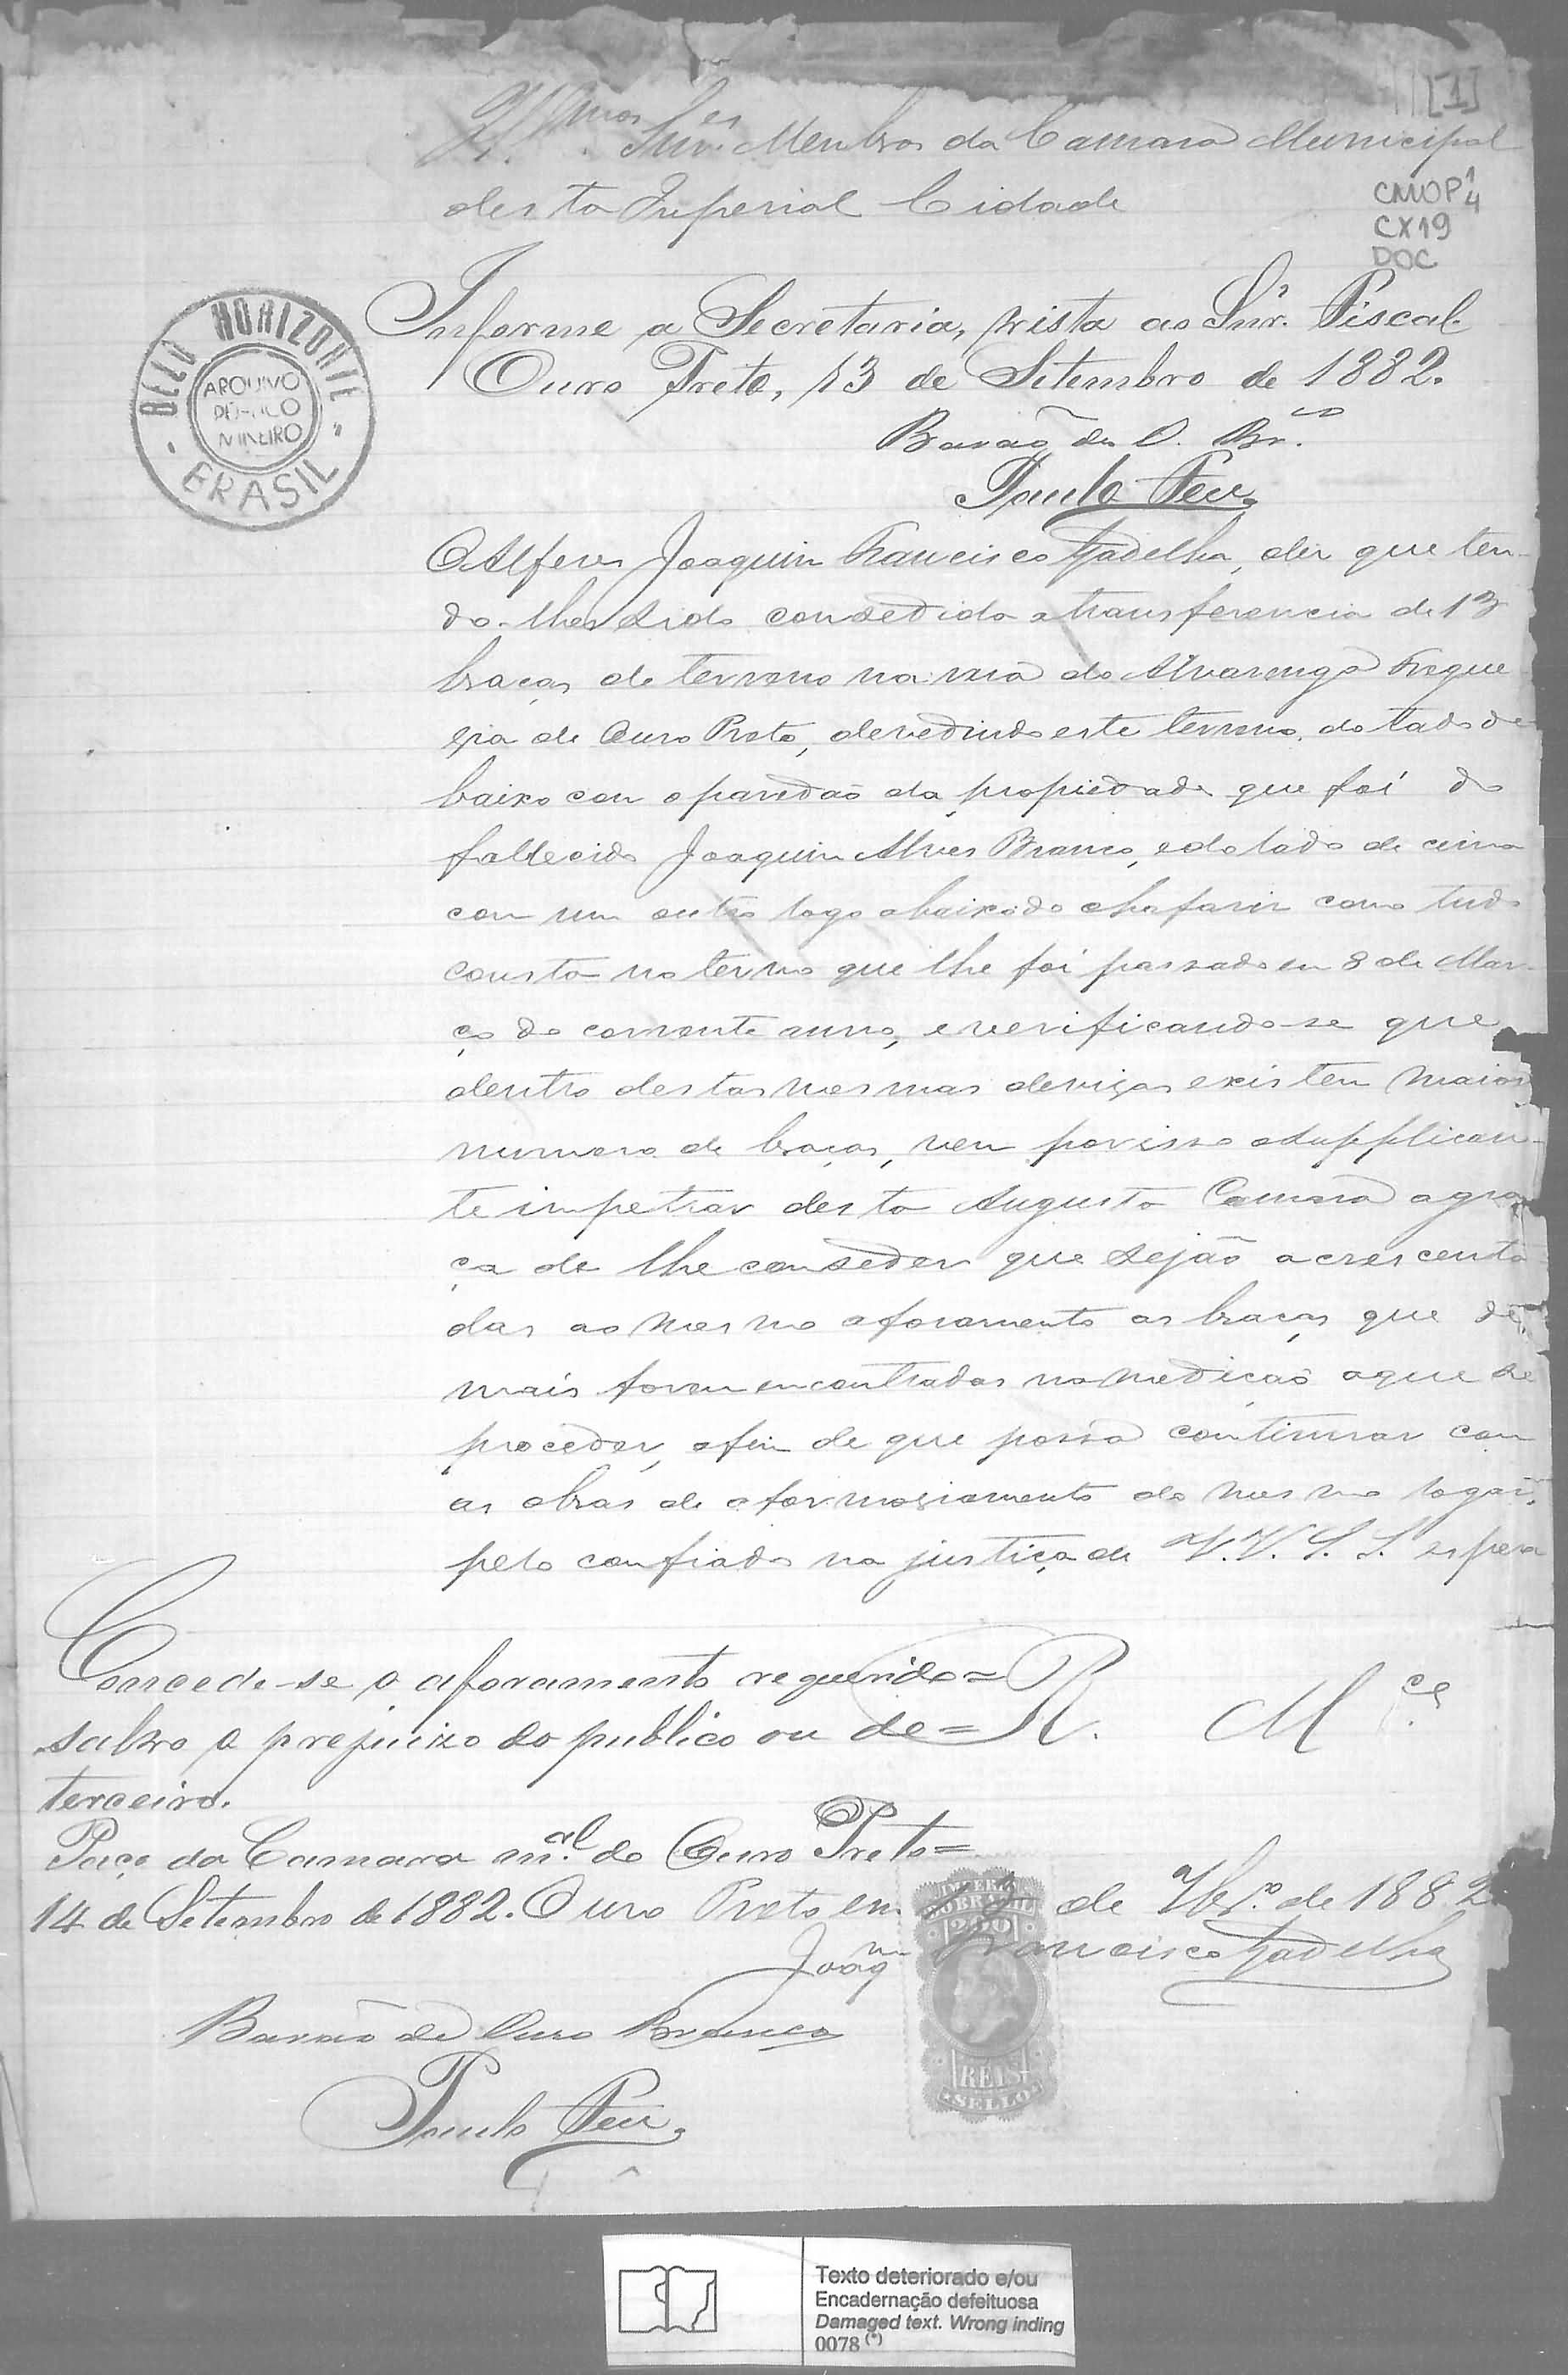 [1]
Ill.mos Snr.es Membros da Camara Municipal
desta Imperial Cidade
CMOP 1/4
CX19
DOC
BELO HORIZONTE
ARQUIVO
PÚBLICO
MINEIRO
BRASIL
Informe a Secretaria, vista ao Snr. Fiscal.
Ouro Preto, 13 de Setembro de 1882.
Barão de O. Br.co
Paulo Feu.
O Alferes Joaquim Francisco Gadelha, diz que ten-
do-lhe sido consedido a transferencia de 13
braças de terreno na rua do Alvarenga Fregue
zia de Ouro Preto, devedindo este terreno, do lado de
baixo com o paredaõ da propiedade que foi do
fallecido Joaquim Alves Branco, e do lado de cima
com um outro logo abaixo do chafariz como tudo
consta no termo que lhe foi passado em 8 de Mar-
ço do corrente anno, e verificando-se que
dentro destas mesmas devizas existem maior
numero de braças, vem por isso o supplican-
te impetrar desta Augusta Camara a gra
ça de lhe conseder que sejão acrescenta
das ao mesmo aforamento as braças que de
mais forem encontradas na mediçaõ a que se
proceder, afim de que possa continuar com
as obras de aformoziamento do mesmo logar,
pelo confiado na justiça de V.V. S. S. espera
Concede-se o aforamento requerido=
salvo o prejuizo do publico ou de=
terceiro.
R. M.ce
Paço da Camara m.al do Ouro Preto=
14 de Setembro de 1882.
Ouro Preto em 13 de 7br.º de 1882
Joaq.m Francisco Gadelha
IMPERIO
DO BRAZIL
200
REIS
SELLO
Barão de Ouro Branco
Paulo Feu.
Texto deteriorado e/ou
Encadernação defeituosa
Damaged text. Wrong inding
0078 (*)